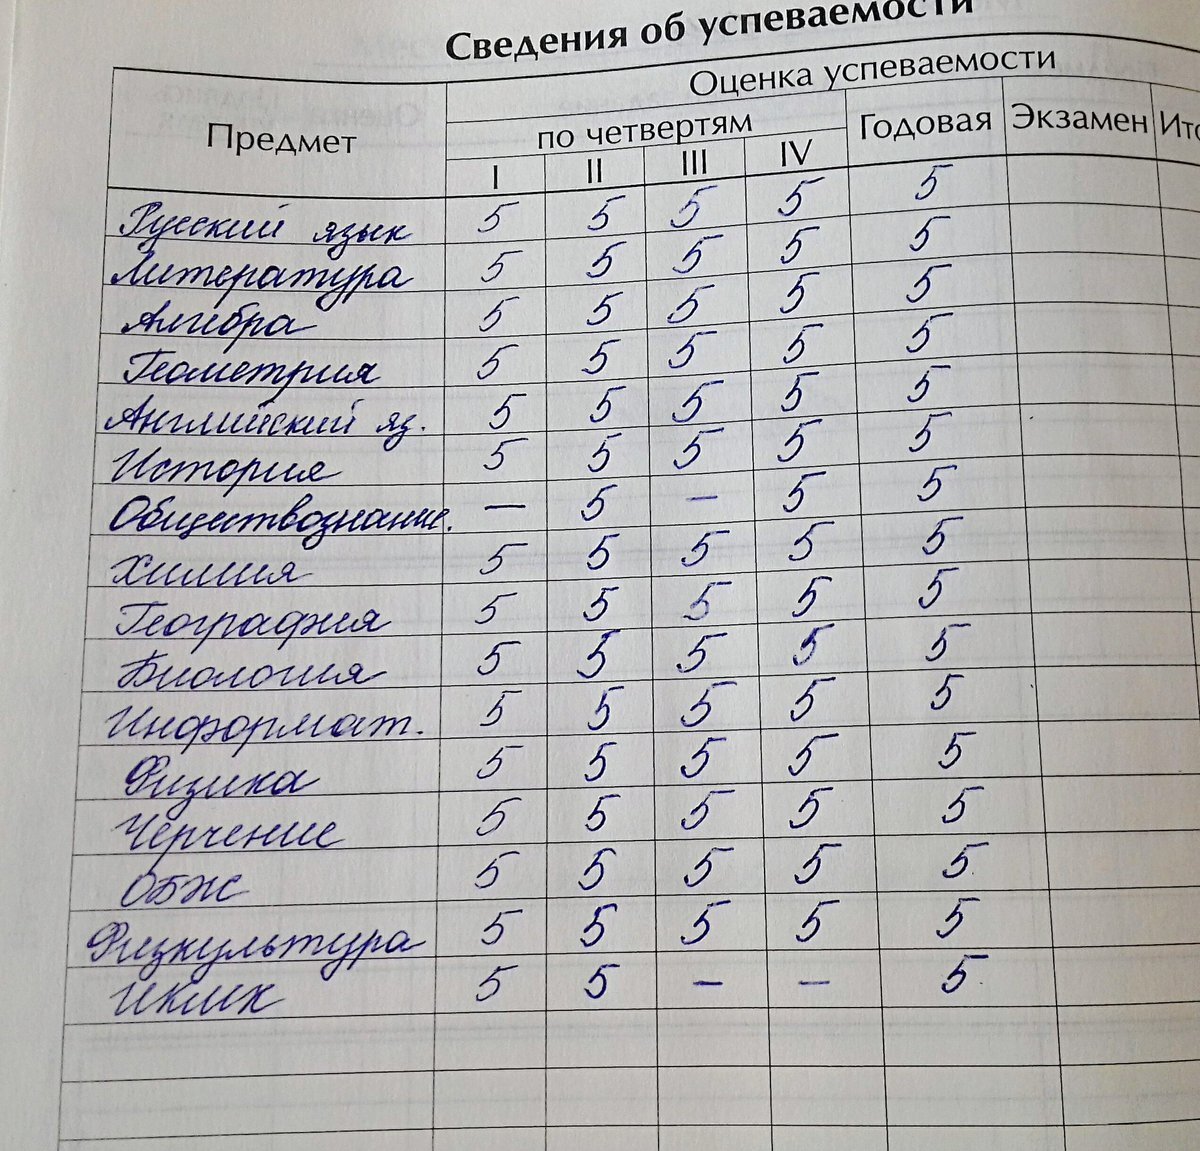 Сведения об успеваемости
Предмет Оценка успеваемости
по четвертям Годовая Экзамен Ито
I II III IV
Русский язык 5 5 5 5 5
Литература 5 5 5 5 5
Алгебра 5 5 5 5 5
Геометрия 5 5 5 5 5
Английский яз. 5 5 5 5 5
История 5 5 5 5 5
Обществознание. — 5 — 5 5
Химия 5 5 5 5 5
География 5 5 5 5 5
Биология 5 5 5 5 5
Информат. 5 5 5 5 5
Физика 5 5 5 5 5
Черчение 5 5 5 5 5
ОБЖ 5 5 5 5 5
Физкультура 5 5 5 5 5
ИКМК 5 5 — — 5